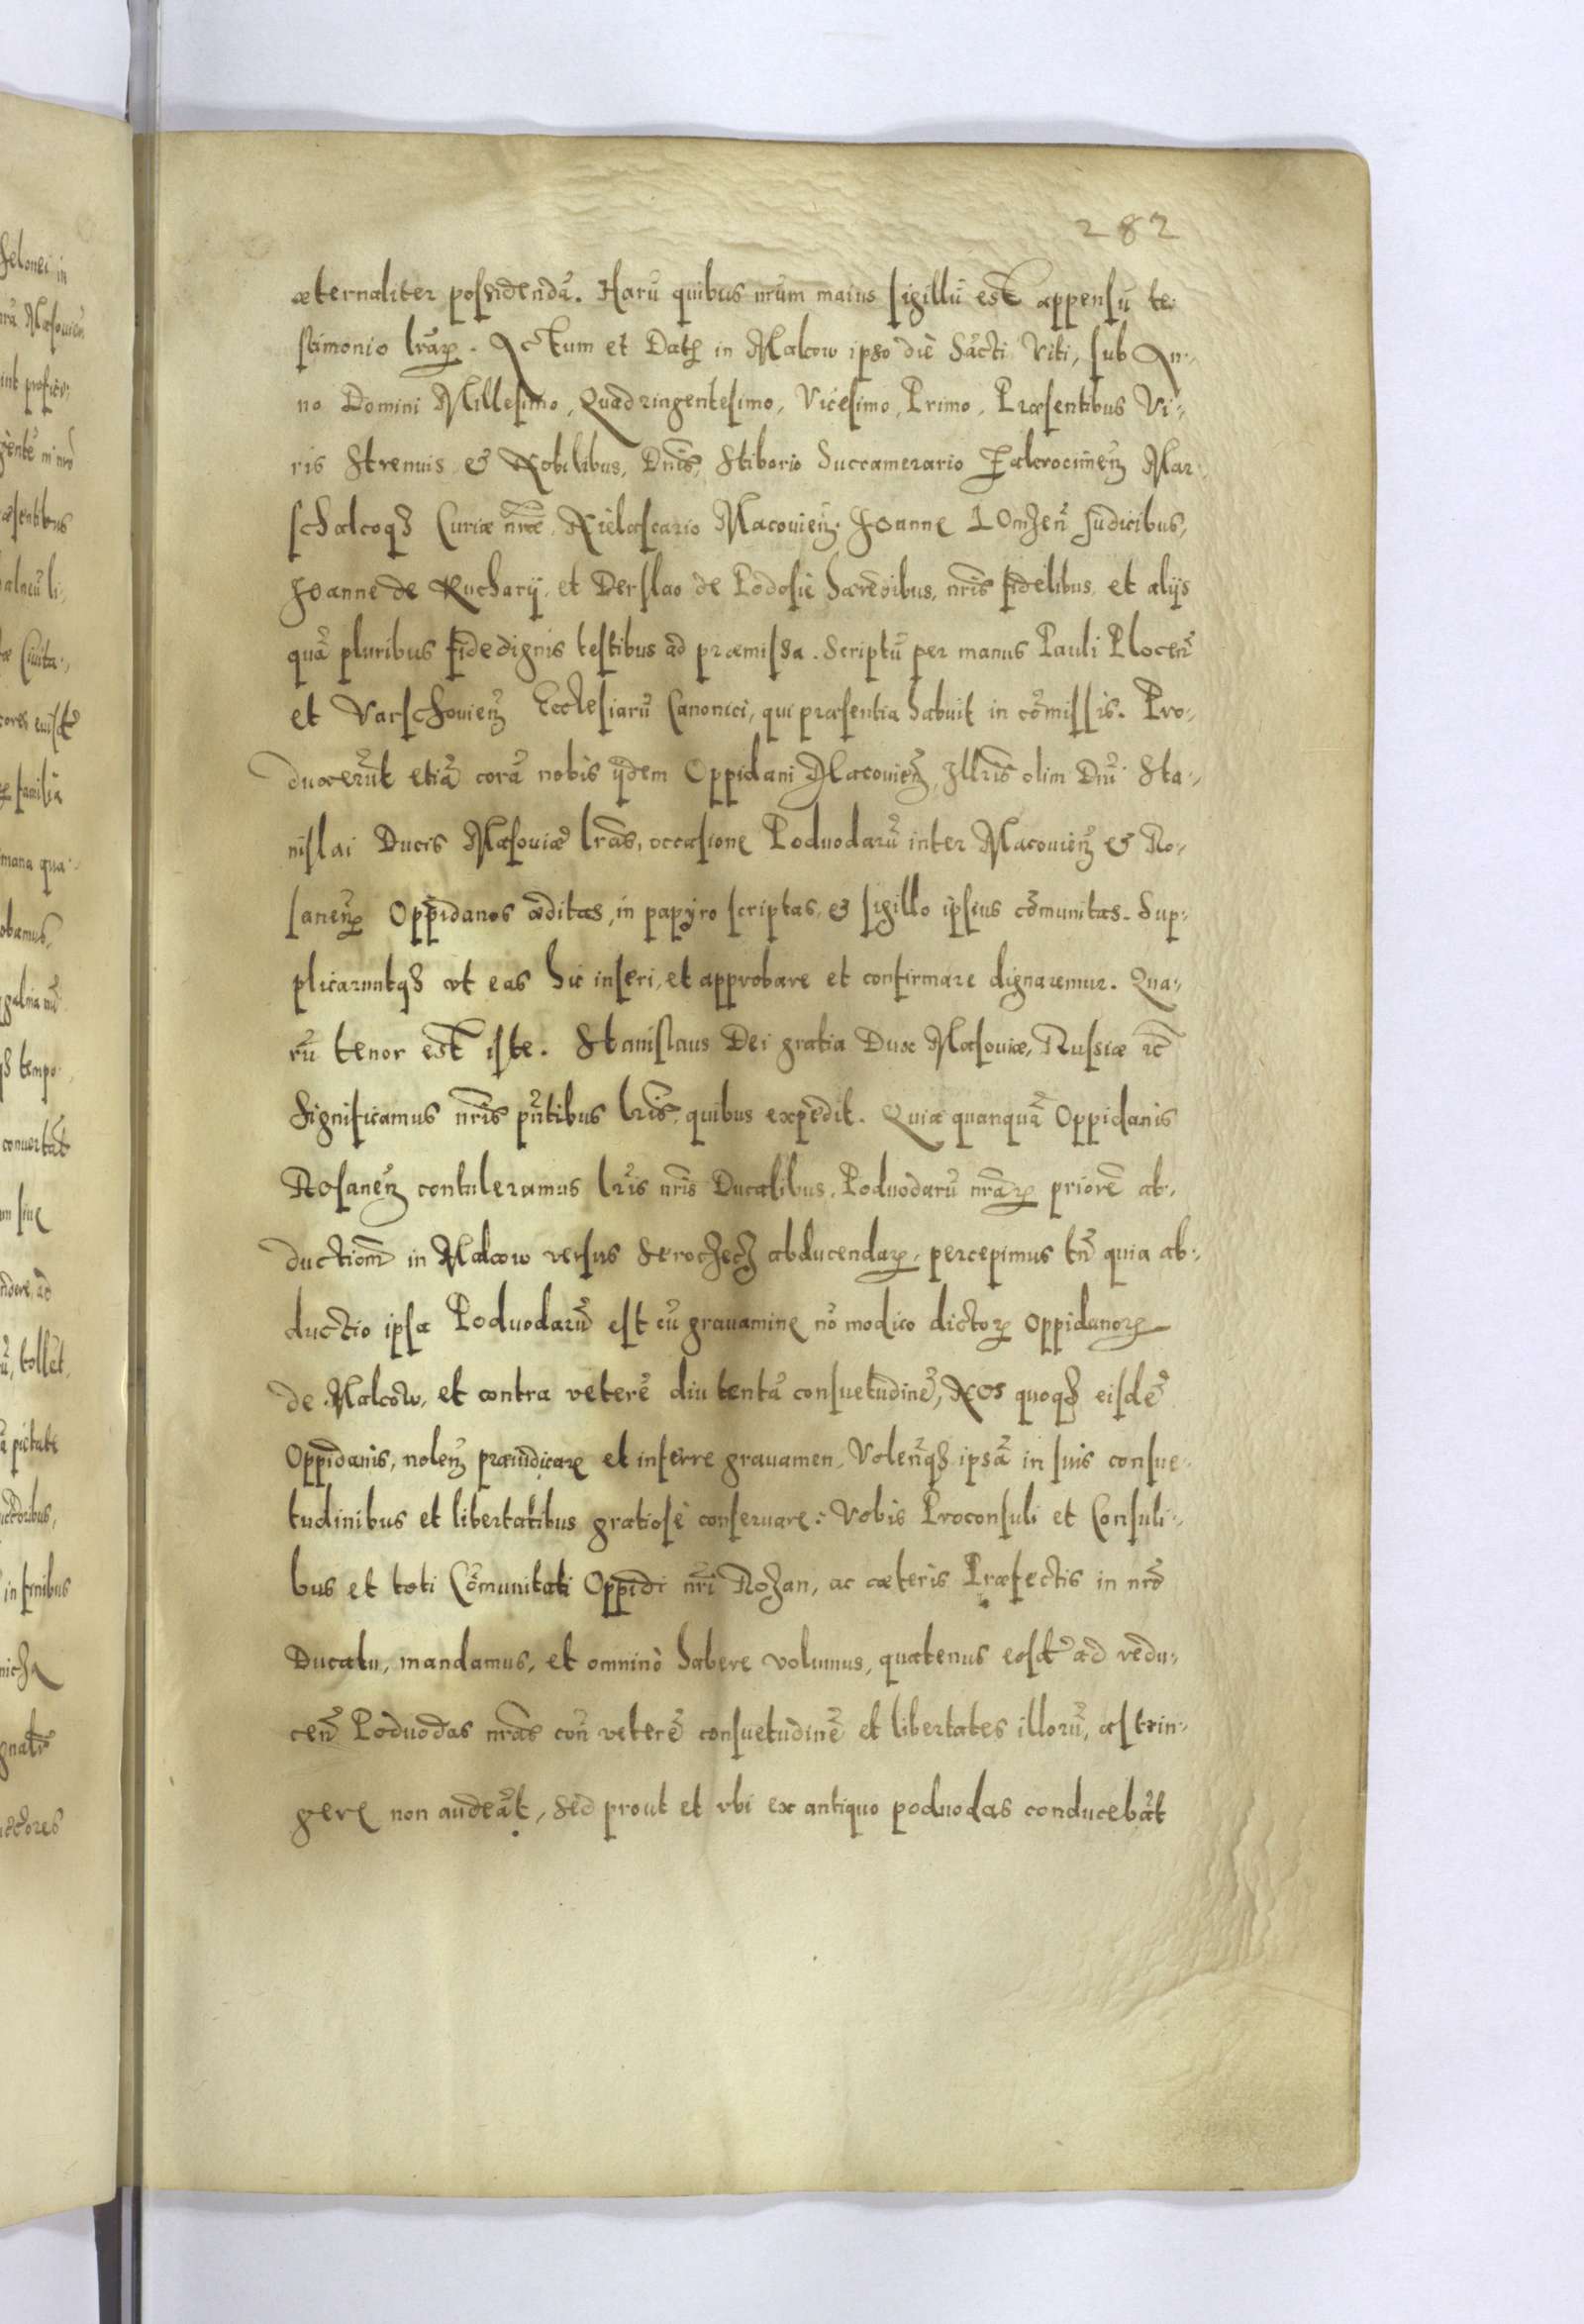 282
æternaliter possidendã. Harũ quibus nrũm maius sigillũ est appensũ te:
stimonio lrãꝝ. Actum et Datꝫ in Makow ipso diè Sãcti Viti, sub An:,
no Domini Millesimo, Quadringentesimo, Vicesimo, Primo, Præsentibus Vi:,
ris Strenuis & Nobilibus, Dnis, Stiborio Succamerario Zakrocimeñ Mar:
schalcoqꝫ Curiæ nræ, Nielascario Macovieñ. Joanne Lomzeñ Judicibus,
Joanne de Kucharÿ, et Derslao de Podosie hæredibus, nris fidelibus, et alÿs
quã pluribus fidedignis testibus ad præmissa. Scriptũ per manus Pauli Ploceñ
et Varschovieñ Ecclesiarũ Canonici, qui præsentia habuit in cõmissis. Pro:,
duxerũt etiã corã nobis ÿdem Oppidani Macovieñ, Illris olim Dñi Sta:,
nislai Ducis Masoviæ lras, occasione Podvodarũ inter Macovieñ & Ro:,
saneñ Oppidanos æditas, in papyro scriptas, & sigillo ipsius cõmunitas. Sup:,
plicaruntqꝫ vt eas hic inseri, et approbare et confirmare dignaremur. Qua:,
rũ tenor est iste. Stanislaus Dei gratia Dux Masoviæ, Russiæ ⁊c̃
Significamus nris pñtibus lris, quibus expèdit. Quia quanquã Oppidanis
Rosaneñ contuleramus lris nris Ducalibus, Podvodarũ nrãꝝ priorẽ ab:,
ductionẽ in Makow versus Seroczecz abducendaꝝ, percepimus tñ quia ab:,
ductio ipsa Podvodarũ est cũ gravamine nõ modico dictoꝝ Oppidanoꝝ
de Makow, et contra veterẽ diu tentã consuetudinẽ, Nos quoqꝫ eisdẽ
Oppidanis, noleñ præiudicare et inferre gravamen, Voleñqꝫ ipsã in suis consue:
tudinibus et libertatibus gratiosè conservare: Vobis Proconsuli et Consuli:,
bus et toti Cõmunitati Oppidi nri Rozan, ac cæteris Præfectis in nrõ
Ducatu, mandamus, et omninò habere volumus, quatenus eosdẽ ad redu:,
ceñ Podvodas nras coñ veterẽ consuetudinẽ et libertates illorũ, astrin:,
gere non audeãt, Sed prout et vbi ex antiquo podvodas conducebãt